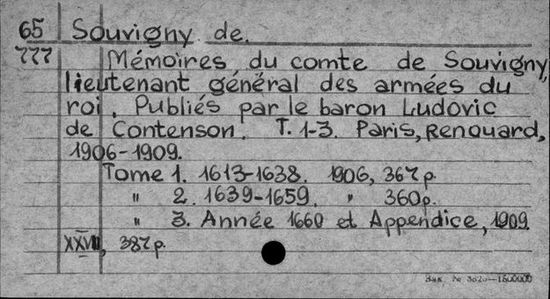 65 Souvigny de.
777 Mémoires du comte de Souvigny,
lieutenant général des armées du
roi. Publiés par le baron Ludovic
de Contenson. T. 1-3. Paris, Renouard,
1906-1909.
Tome 1. 1613-1638. 1906, 367 p.
" 2. 1639-1659. " 360 p.
" 3. Année 1660 et Appendice, 1909.
XXVII, 387 p.